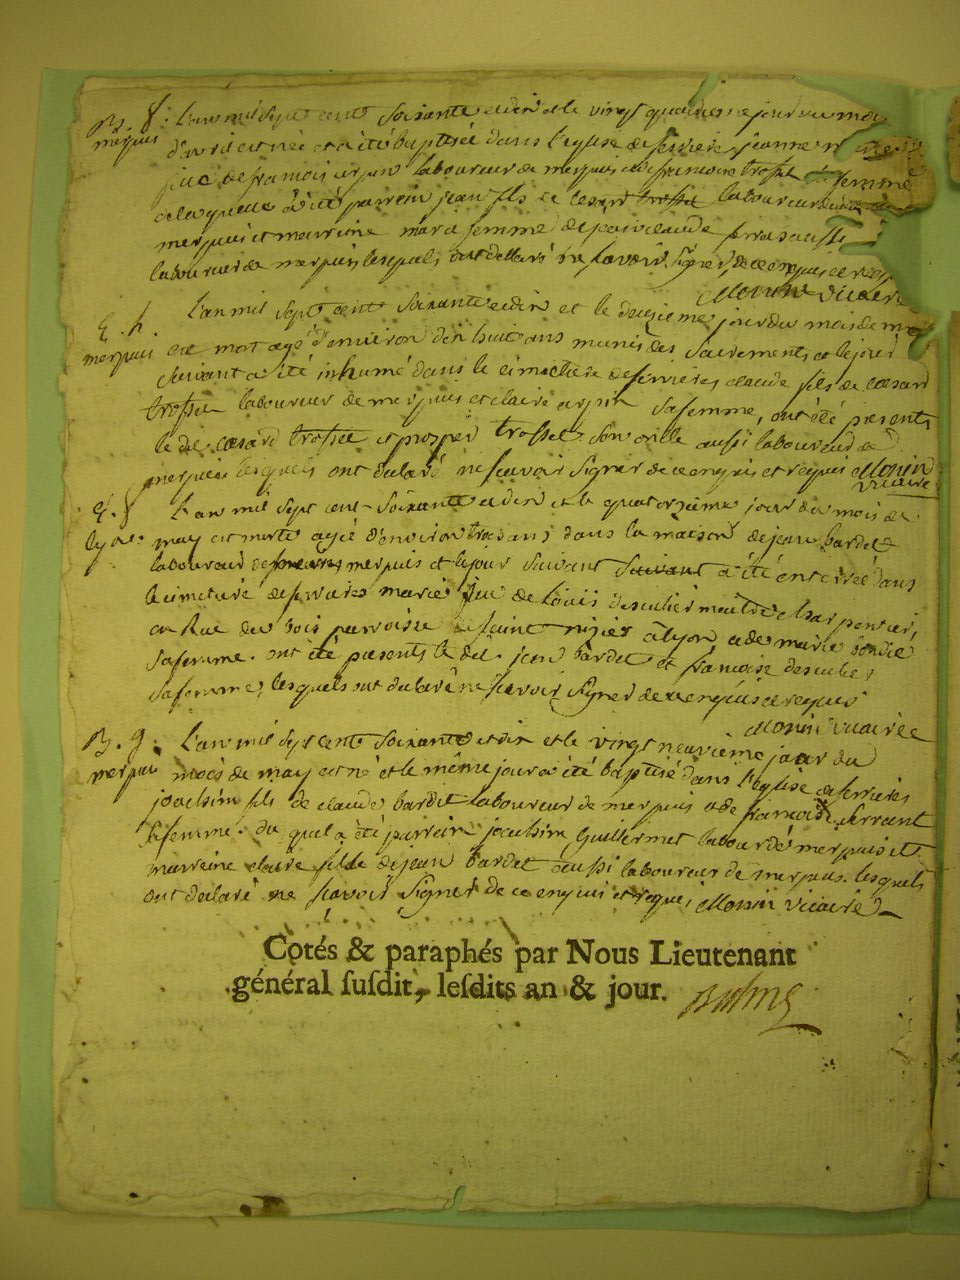 B. 8. L'an mil sept cent soixante et dix et le vingt quatrieme jour du moi
merpuis d'avril est née et a été baptisée dans l'eglise de ferrieres jeanne
fille de francois arpin laboureur de merpuis et de francoise trosset sa femme
de laquelle a été parrein jean fils de cesard trosset laboureur de
merpuis et marreine femme de claude aussi
laboureur de merpuis lesquels ont declaré ne savoir signer de ce enquis et req
Monin vicaire
L'an mil sept cent soixante et dix et le deuxieme jour du mois de m
merpuis est mort agé d'environ dix huit ans munis des sacrements et le jour
suivant a été inhumé dans le cimetiere de ferrieres claude fils de cœsard
trosset laboureur de merpuis et claire arpin sa femme, ont été presents
le dit cœsard trosset et prosper trosset son aussi laboureur de
merpuis lesquels ont declaré ne scavoir signer de ce enquis et requis Monin
vicaire
L'an mil sept cent soixante et dix et le quatorzieme jour du mois de
lyon may est morte agée d'environ trois ans dans la maison de jean bardet
laboureur de merpuis et le jour suivant suivant a été enterrée dans
le cimetiere de ferrieres marie fille de Louis descullier maitre charpentier,
en Rue du bois parroisse de saint nizier a lyon, et de marie
sa femme. ont été presents le dit jean bardet et francoise
sa femme, lesquels ont declaré ne scavoir signer de ce enquis et requis
Monin vicaire
B. 9. L'an mil sept cent soixante et dix et le vingt neuvieme jour du
merpuis mois de may est né et le même jour a été baptisé dans l'eglise de ferrieres
joachim fils de claude bardet laboureur de merpuis et de francoise ferrant
sa femme. du quel a été parrein joachim Guillermet labour de merpuis et
marreine claire fille de jean bardet aussi laboureur de merpuis. lesquels
ont declaré ne scavoir signer de ce enquis et requi, Monin vicaire
Cotés & paraphés par Nous Lieutenant
général ſuſdit, leſdits an & jour.